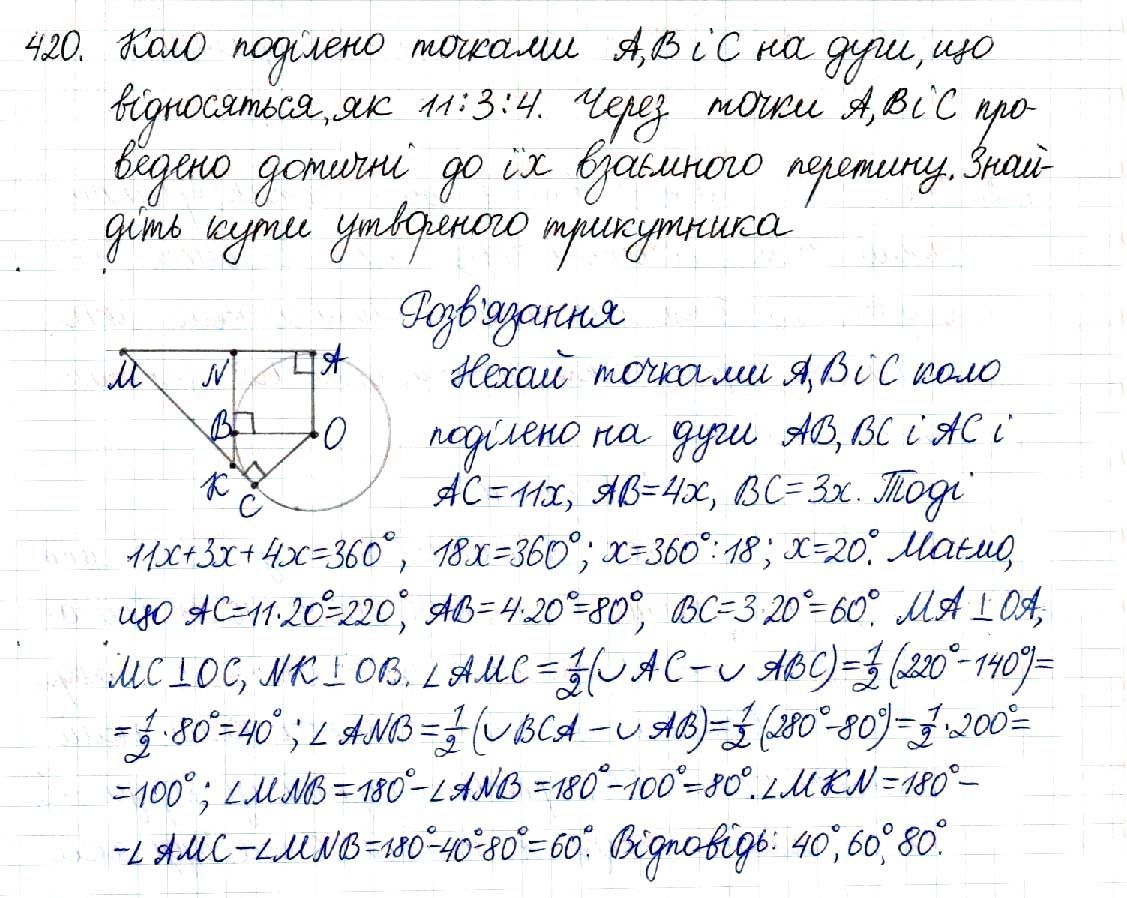 420. Коло поділено точками A, B і C на дуги, що
відносяться, як 11:3:4. Через точки A, B і C про-
ведено дотичні до їх взаємного перетину. Знай-
діть кути утвореного трикутника
Розв'язання
M N A
B O
K
C
Нехай точками A, B і C коло
поділено на дуги AB, BC і AC і
AC=11x, AB=4x, BC=3x. Тоді
11x+3x+4x=360°, 18x=360°; x=360°:18; x=20°. Маємо,
що AC=11·20°=220°, AB=4·20°=80°, BC=3·20°=60°. MA⊥OA,
MC⊥OC, NK⊥OB. ∠AMC=1/2(∪AC-∪ABC)=1/2(220°-140°)=
=1/2·80°=40°; ∠ANB=1/2(∪BCA-∪AB)=1/2(280°-80°)=1/2·200°=
=100°; ∠MNB=180°-∠ANB=180°-100°=80°. ∠MKN=180°-
-∠AMC-∠MNB=180°-40°-80°=60°. Відповідь: 40°, 60°, 80°.